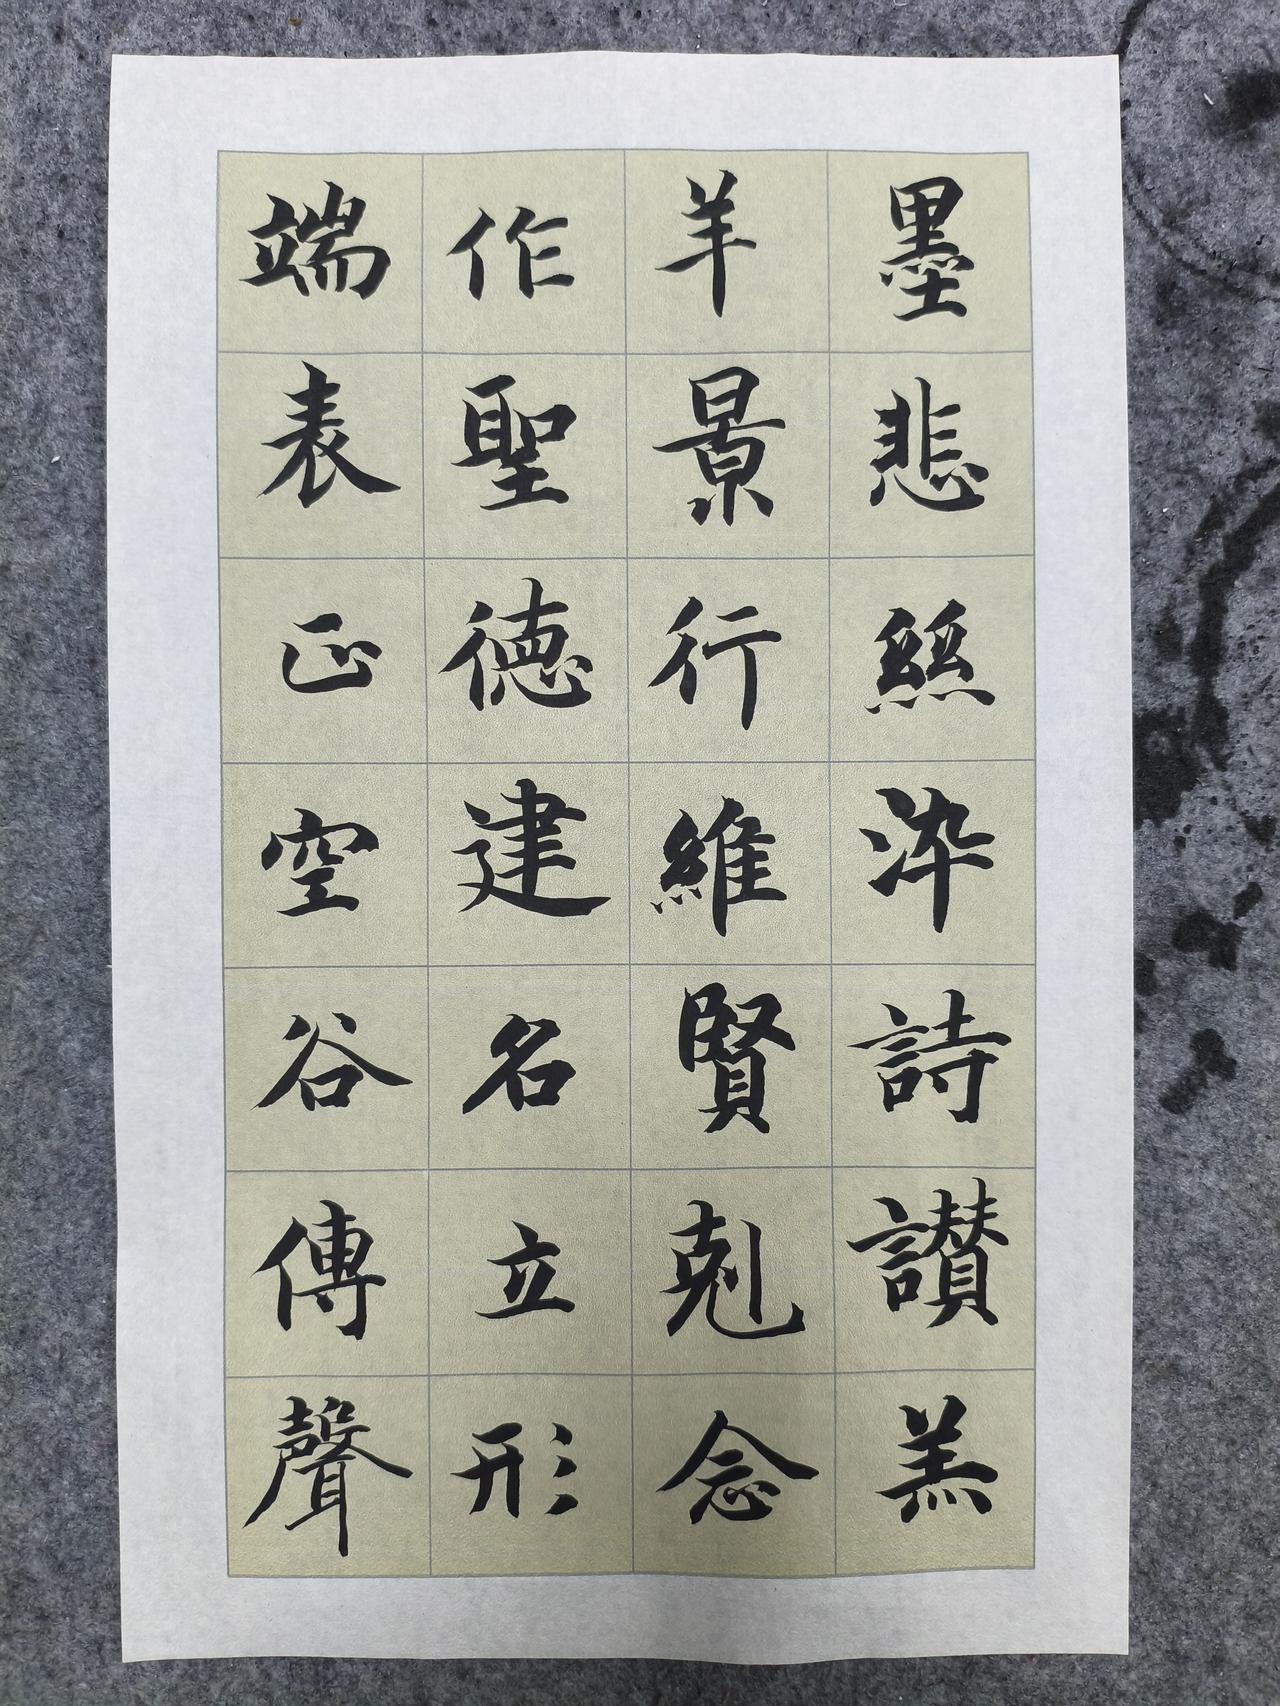 墨悲絲染詩讃羔
羊景行維賢剋念
作聖德建名立形
端表正空谷傳聲